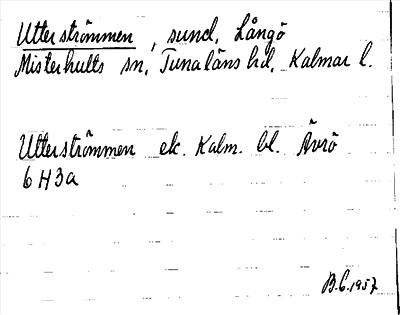 Utterströmmen, sund, Långö
Misterhults sn, Tunaläns hd, Kalmar l.
Utterströmmen ek. Kalm. bl. Ävrö
6 H 3a
B.G. 1957